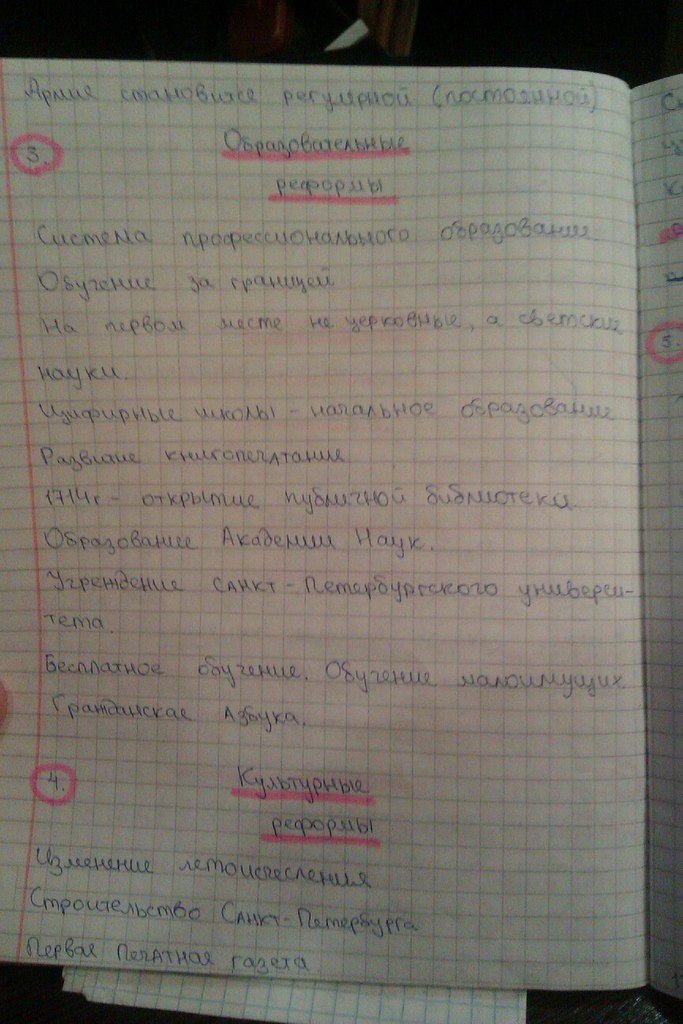 Армия становится регулярной (постоянной)
3. Образовательные
реформы
Система профессионального образования
Обучение за границей
На первом месте не церковные, а светские
науки.
Цифирные школы - начальное образование
Развитие книгопечатания
1714г - открытие публичной библиотеки.
Образование Академии Наук.
Учреждение Санкт-Петербургского универси-
тета.
Бесплатное обучение. Обучение малоимущих
Гражданская Азбука.
4. Культурные
реформы
Изменение летоисчесления
Строительство Санкт-Петербурга
Первая печатная газета
5.